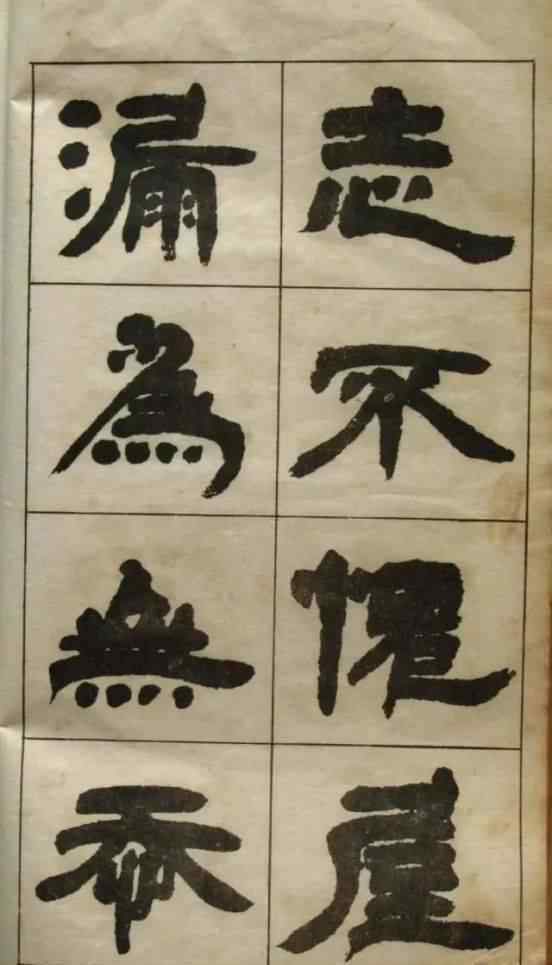 志不愧屋
漏爲無忝